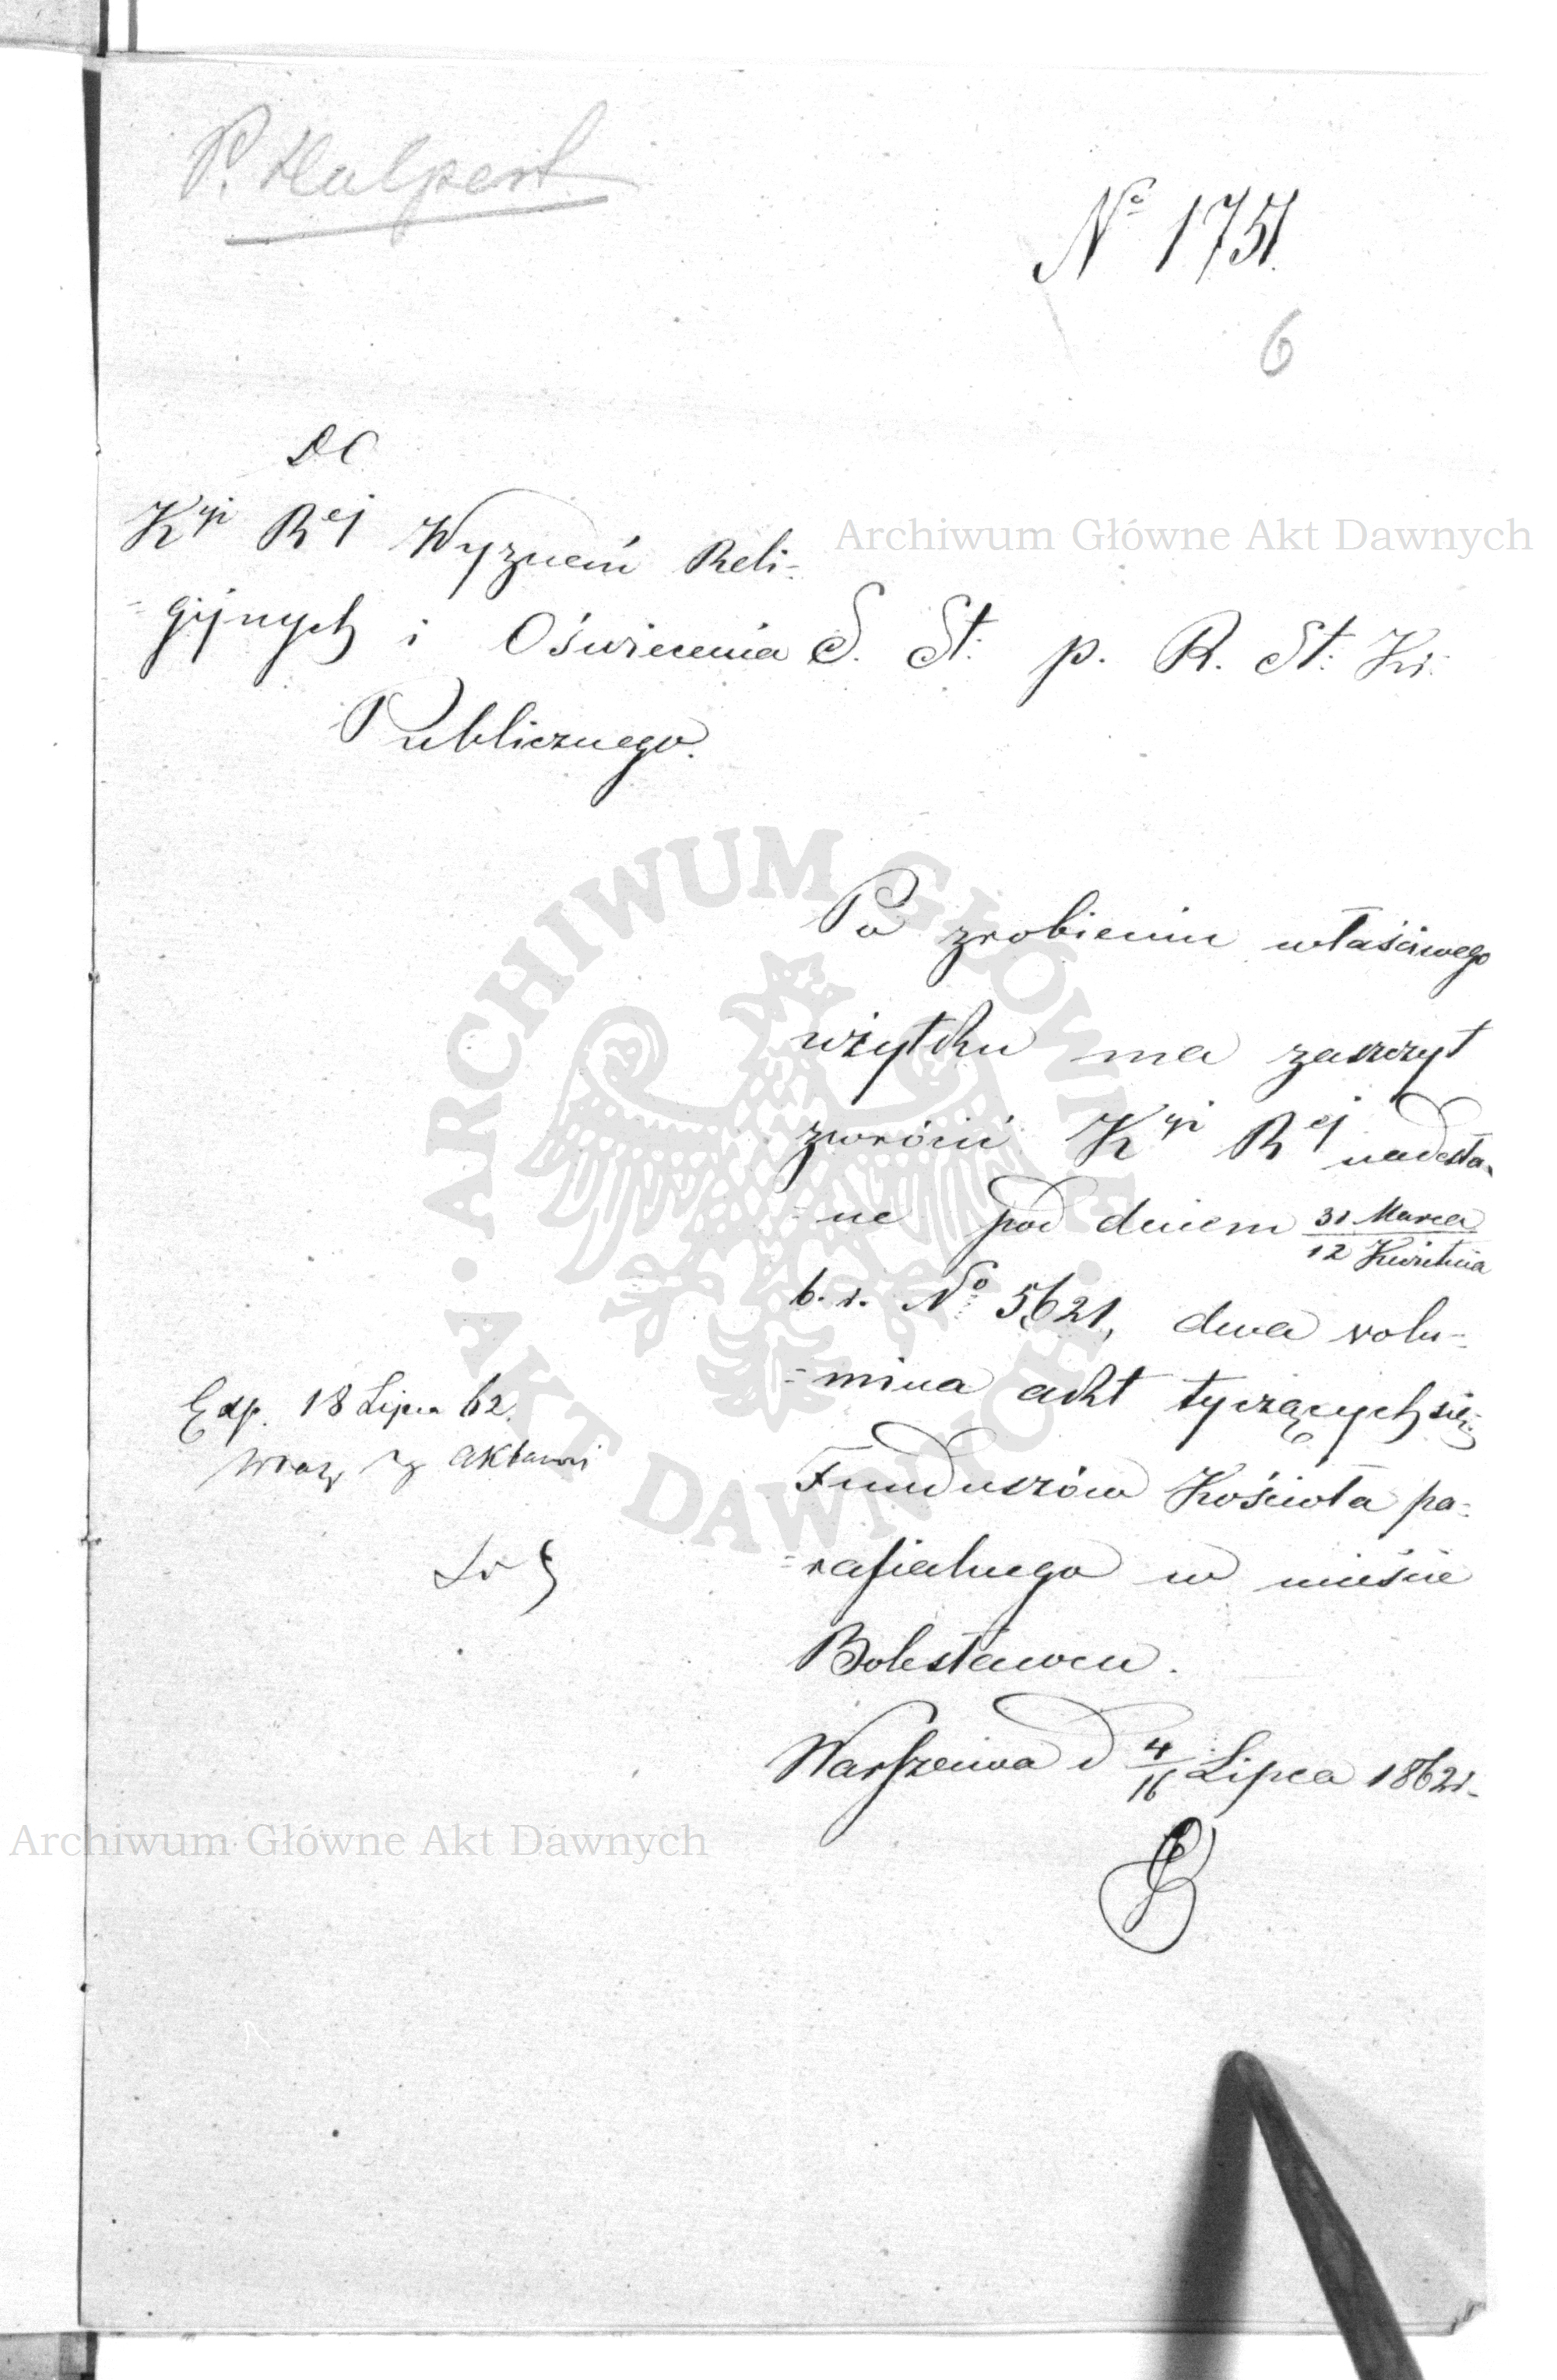 P. Halpert
Nº 1751.
6
DO
Kyi Rej Wyznań Reli-
-gijnych i Oświecenia
Publicznego.
S. St: p. R. St: Kr:
Po zrobieniu właściwego
użytku ma zaszczyt
zwrócić Kyi Rej nadesła-
-ne pod dniem 31 Marca
12 Kwietnia
b.r. Nº 5621, dwa volu-
-mina akt tyczących się
Funduszów Kościoła pa-
-rafialnego w mieście
Bolesławcu.
Warszawa d 4/16 Lipca 1862 r.
Exp. 18 Lipca 62.
wraz z aktami
Archiwum Główne Akt Dawnych
ARCHIWUM GŁÓWNE · AKT DAWNYCH ·
Archiwum Główne Akt Dawnych